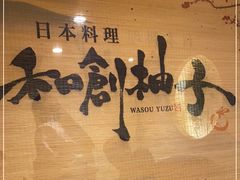 日本料理
和創柚子
WASOU YUZU